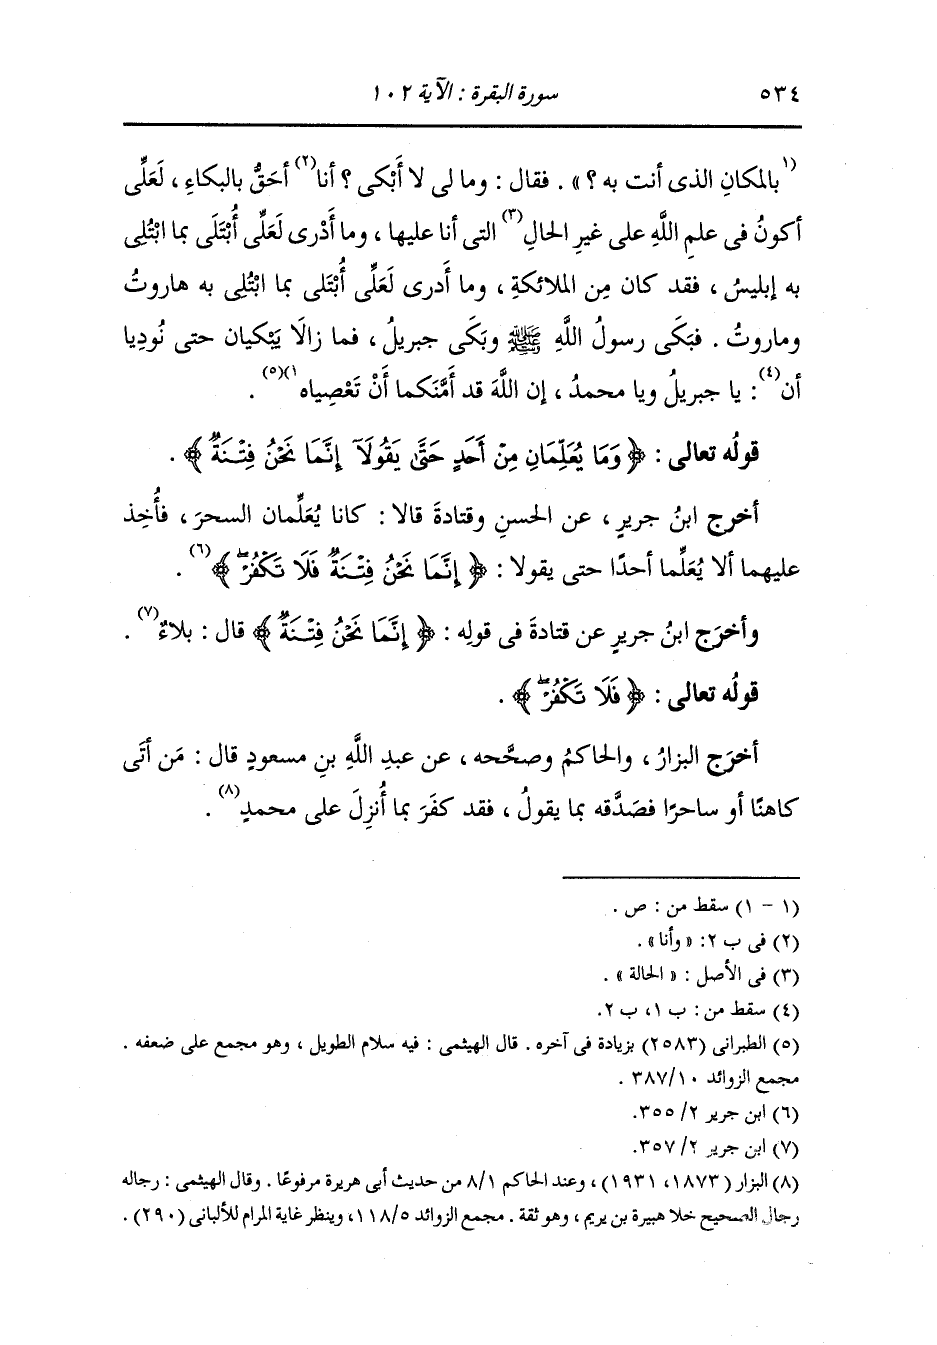 ٥٣٤
سورة البقرة : الآية ١٠٢
(١) بالمكانِ الذى أنت به ؟ » . فقال : وما لى لا أَبْكى ؟ أنا(٢) أحَقُّ بالبكاءِ ، لَعَلِّى
أكونُ فى علمِ اللَّهِ على غيرِ الحالِ(٣) التى أنا عليها ، وما أَدْرى لَعَلِّى أُبْتَلَى بما ابْتُلِى
به إبليسُ ، فقد كان مِن الملائكةِ ، وما أَدرى لَعَلِّى أُبْتَلى بما ابْتُلِى به هاروتُ
وماروتُ . فبَكَى رسولُ اللَّهِ ﷺ وبَكَى جبريلُ ، فما زالَا يَبْكيان حتى نُودِيا
أن(٤) : يا جبريلُ ويا محمدُ ، إن اللَّهَ قد أَمَّنَكما أَنْ تَعْصِياه(١)(٥) .
قولُه تعالى : ﴿ وَمَا يُعَلِّمَانِ مِنْ أَحَدٍ حَتَّىٰ يَقُولَآ إِنَّمَا نَحْنُ فِتْنَةٌ ﴾ .
أخرج ابنُ جريرٍ ، عن الحسنِ وقتادةَ قالا : كانا يُعَلِّمان السحرَ ، فأُخِذ
عليهما ألا يُعَلِّما أحدًا حتى يقولا : ﴿ إِنَّمَا نَحْنُ فِتْنَةٌ فَلَا تَكْفُرْ ﴾(٦) .
وأخرَج ابنُ جريرٍ عن قتادةَ فى قولِه : ﴿ إِنَّمَا نَحْنُ فِتْنَةٌ ﴾ قال : بلاءٌ(٧) .
قولُه تعالى : ﴿ فَلَا تَكْفُرْ ﴾ .
أخرَج البزارُ ، والحاكمُ وصحَّحه ، عن عبدِ اللَّهِ بنِ مسعودٍ قال : مَن أتَى
كاهنًا أو ساحرًا فصَدَّقه بما يقولُ ، فقد كفَرَ بما أُنزِلَ على محمدٍ(٨) .
(١ - ١) سقط من : ص .
(٢) فى ب ٢: « وأنا » .
(٣) فى الأصل : « الحالة » .
(٤) سقط من : ب ١، ب ٢.
(٥) الطبرانى (٢٥٨٣) بزيادة فى آخره . قال الهيثمى : فيه سلام الطويل ، وهو مجمع على ضعفه .
مجمع الزوائد ٣٨٧/١٠ .
(٦) ابن جرير ٢/ ٣٥٥.
(٧) ابن جرير ٢/ ٣٥٧.
(٨) البزار ( ١٨٧٣، ١٩٣١) ، وعند الحاكم ٨/١ من حديث أبى هريرة مرفوعًا . وقال الهيثمى : رجاله
رجال الصحيح خلا هبيرة بن يريم ، وهو ثقة . مجمع الزوائد ١١٨/٥، وينظر غاية المرام للألبانى (٢٩٠) .